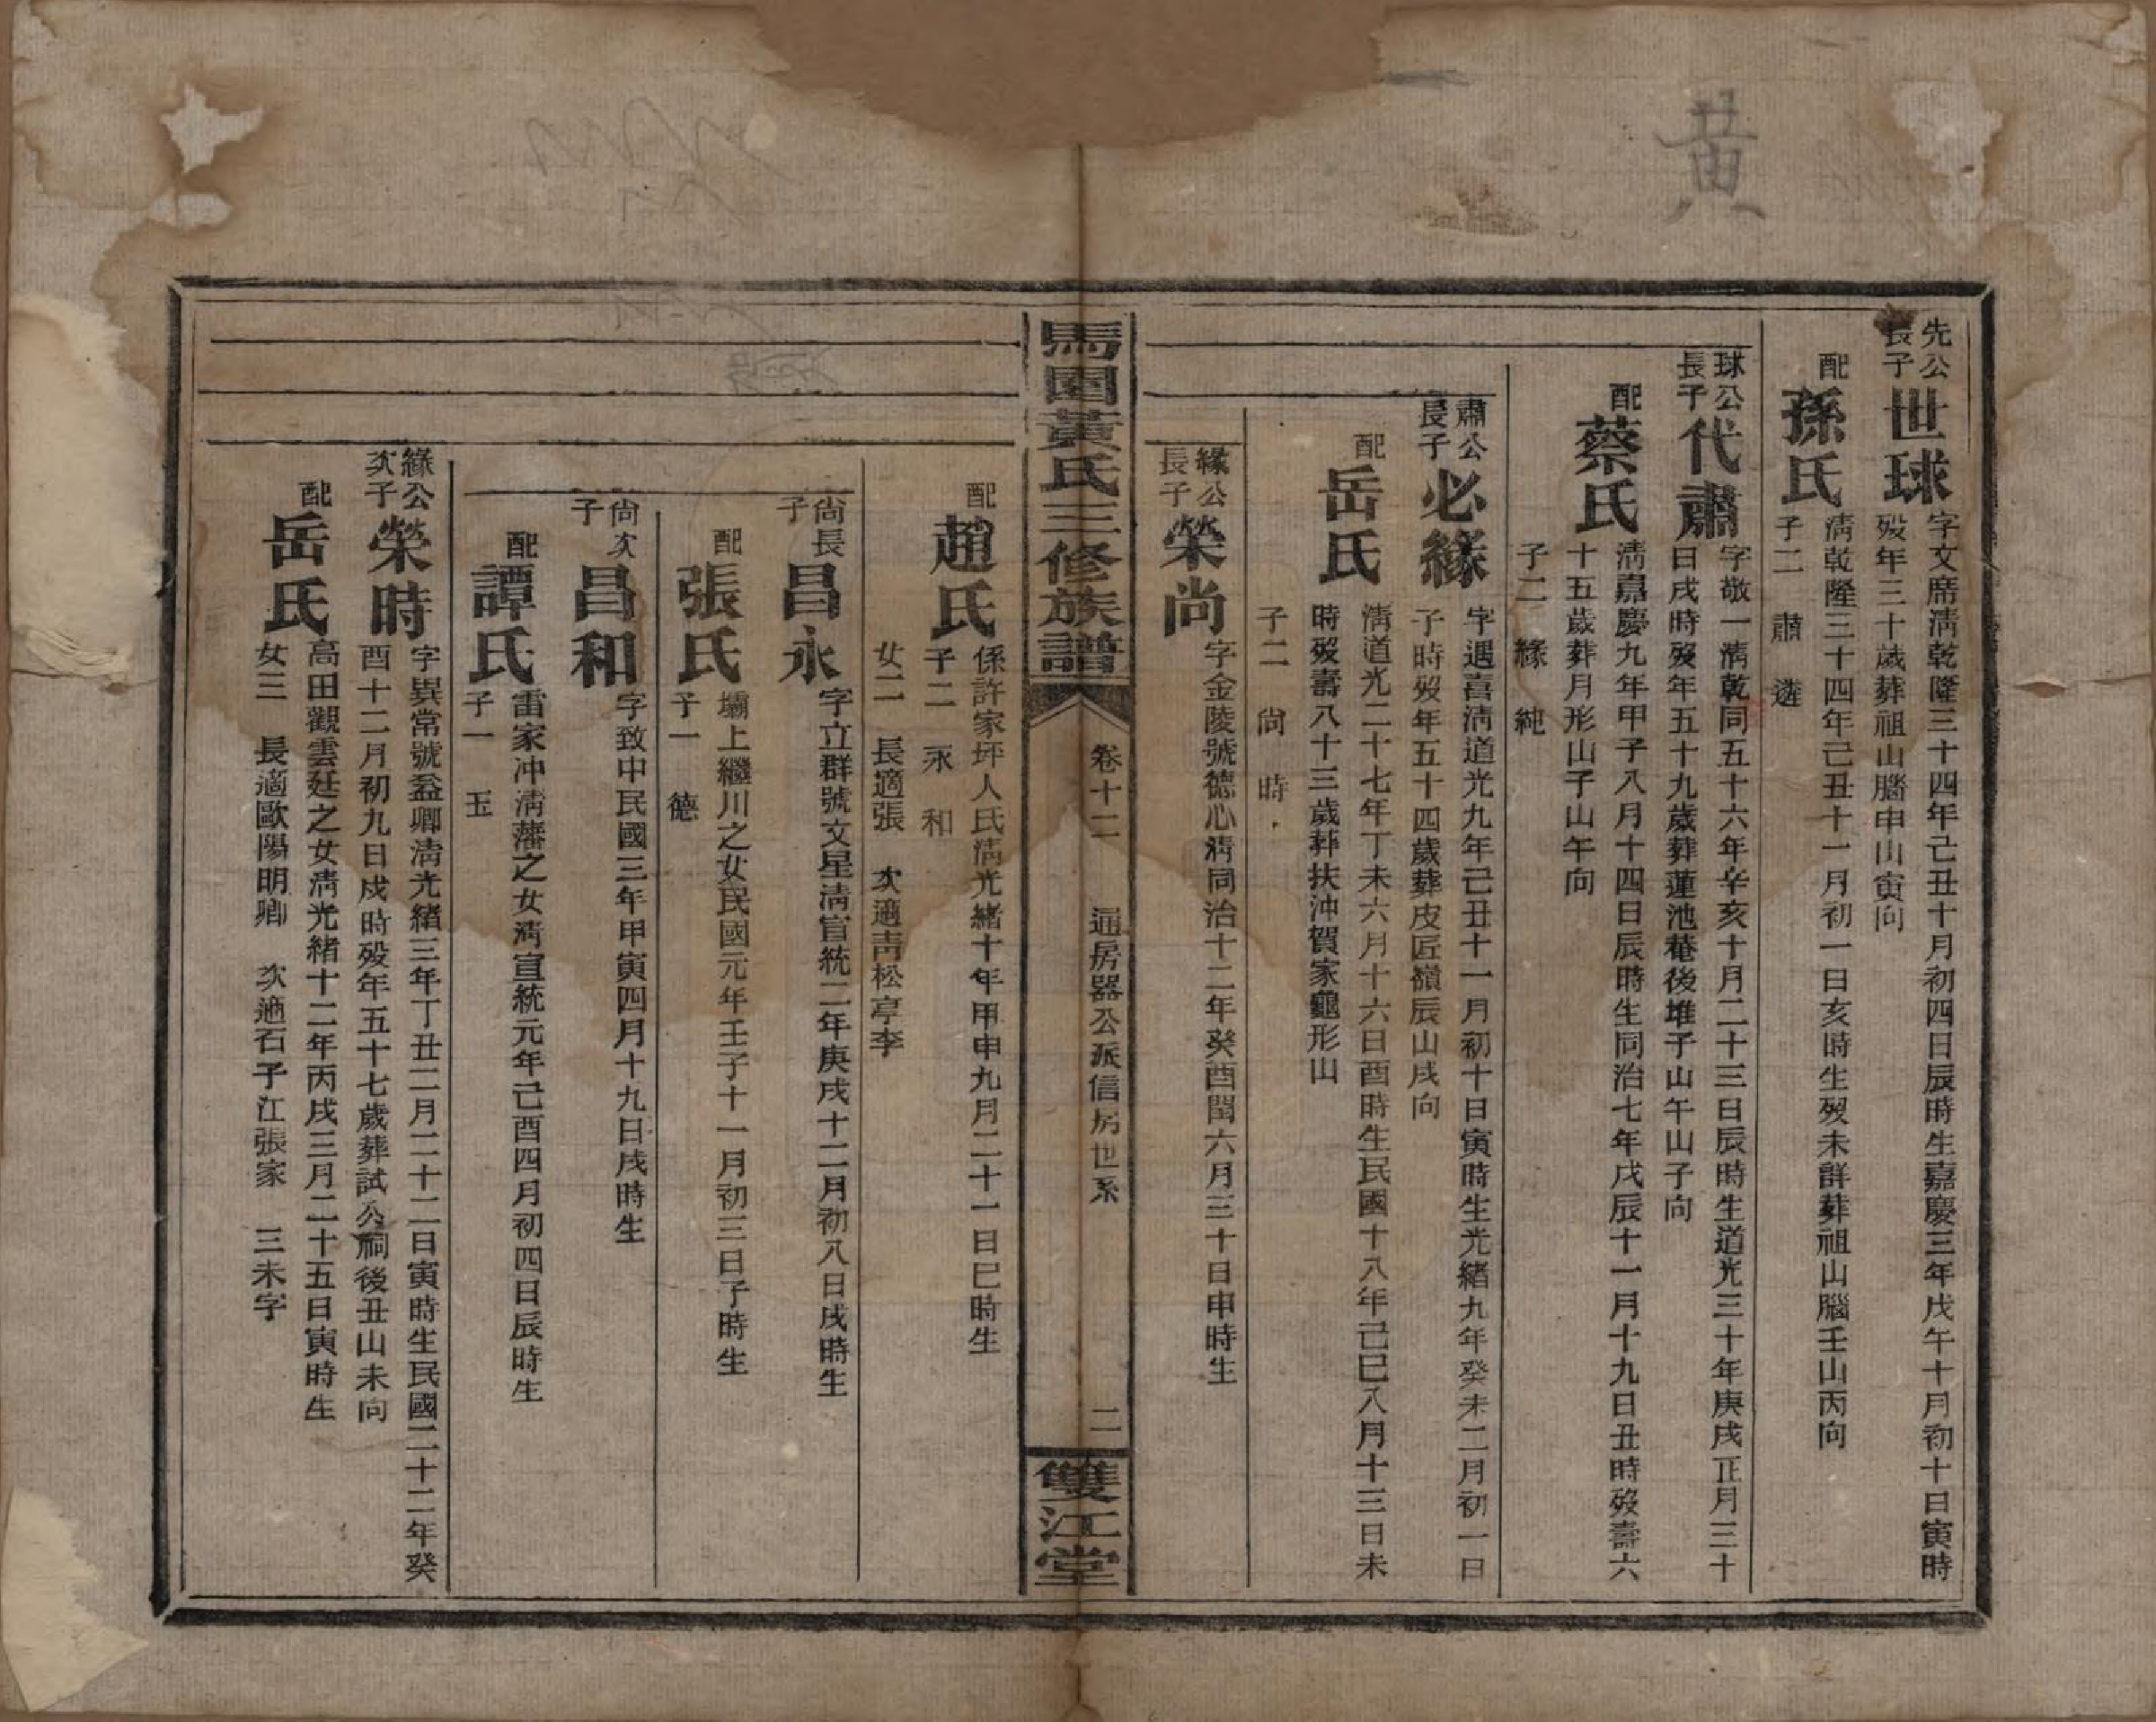 黃
先公
長子
世球
字文席清乾隆三十四年己丑十月初四日辰時生嘉慶三年戊午十月初十日寅時
歿年三十歲葬祖山腦申山寅向
配
孫氏
清乾隆三十四年己丑十一月初一日亥時生歿未詳葬祖山腦壬山丙向
子二 肅 遴
球公
長子
代肅
字敬一清乾同五十六年辛亥十月二十三日辰時生道光三十年庚戌正月三十
日戌時歿年五十九歲葬蓮池菴後堆子山午山子向
配
蔡氏
清嘉慶九年甲子八月十四日辰時生同治七年戊辰十一月十九日丑時歿壽六
十五歲葬月形山子山午向
子二 緣 純
肅公
長子
必緣
字遇喜清道光九年己丑十一月初十日寅時生光緒九年癸未二月初一日
子時歿年五十四歲葬皮匠嶺辰山戌向
配
岳氏
清道光二十七年丁未六月十六日酉時生民國十八年己巳八月十三日未
時歿壽八十三歲葬扶沖賀家龜形山
子二 尚 時
緣公
長子
榮尚
字金陵號德心清同治十二年癸酉閏六月三十日申時生
馬園黃氏三修族譜
卷十二
通房器公派信房世系
二
雙江堂
配
趙氏
係許家坪人氏清光緒十年甲申九月二十一日巳時生
子二 永 和
女二 長適張 次適青松亭李
尚長
子
昌永
字立群號文星清宣統二年庚戌十二月初八日戌時生
配
張氏
壩上繼川之女民國元年壬子十一月初三日子時生
子一 德
尚次
子
昌和
字致中民國三年甲寅四月十九日戌時生
配
譚氏
雷家冲清藩之女清宣統元年己酉四月初四日辰時生
子一 玉
緣公
次子
榮時
字異常號益卿清光緒三年丁丑二月二十二日寅時生民國二十二年癸
酉十二月初九日戌時歿年五十七歲葬試公祠後丑山未向
配
岳氏
高田觀雲廷之女清光緒十二年丙戌三月二十五日寅時生
女三 長適歐陽明卿 次適石子江張家 三未字